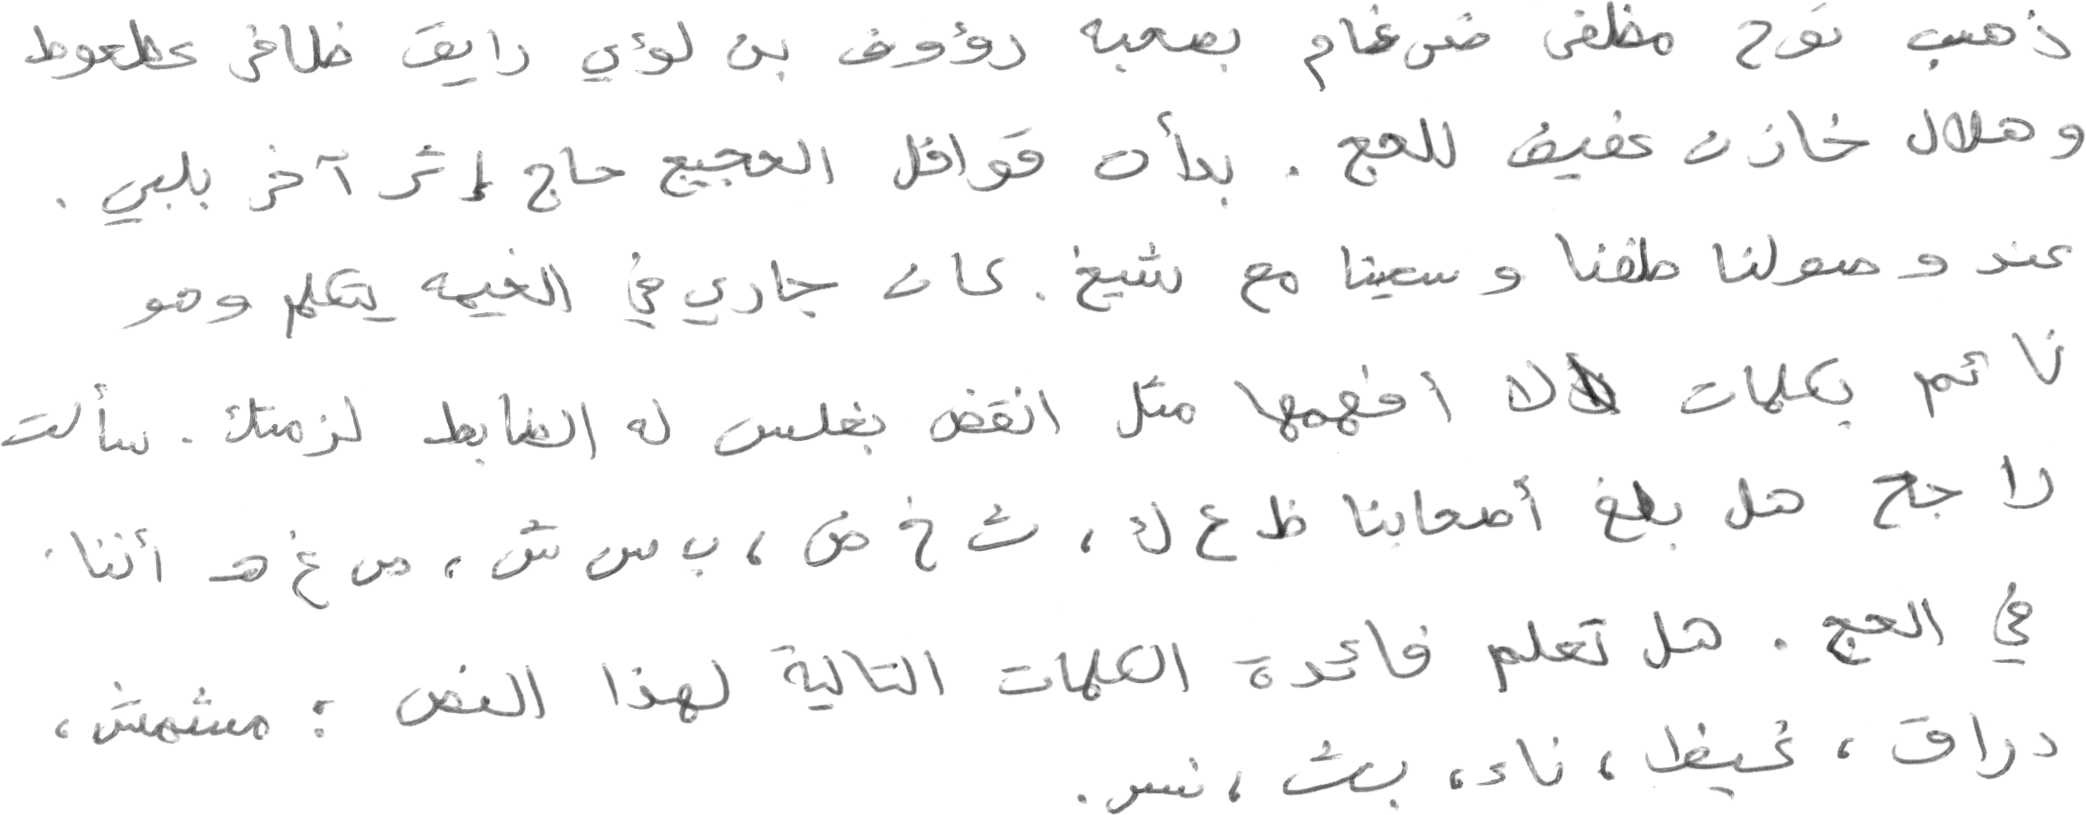 ذهب نوح مظفر ضرغام بصحبه رؤوف بن لؤي رايق ظافر عطعوط
وهلال خازن عفيف للحج . بدأت قوافل الحجيج حاج إثر آخر بلبي .
عند وصولنا طفنا وسعينا مع شيخ . كان جاري في الخيمه يتكلم وهو
نائم بكلمات لا افهمها مثل انقض بغلس له الضابط لزمتك . سألت
راجح هل بلغ أصحابنا ظ ع ك ، ث خ ض ، ب س ش ، ص غ هـ أننا
في الحج . هل تعلم فائدة الكلمات التالية لهذا النص : مشمش ،
دراق ، غيظ ، ناء ، بث ، نسر .